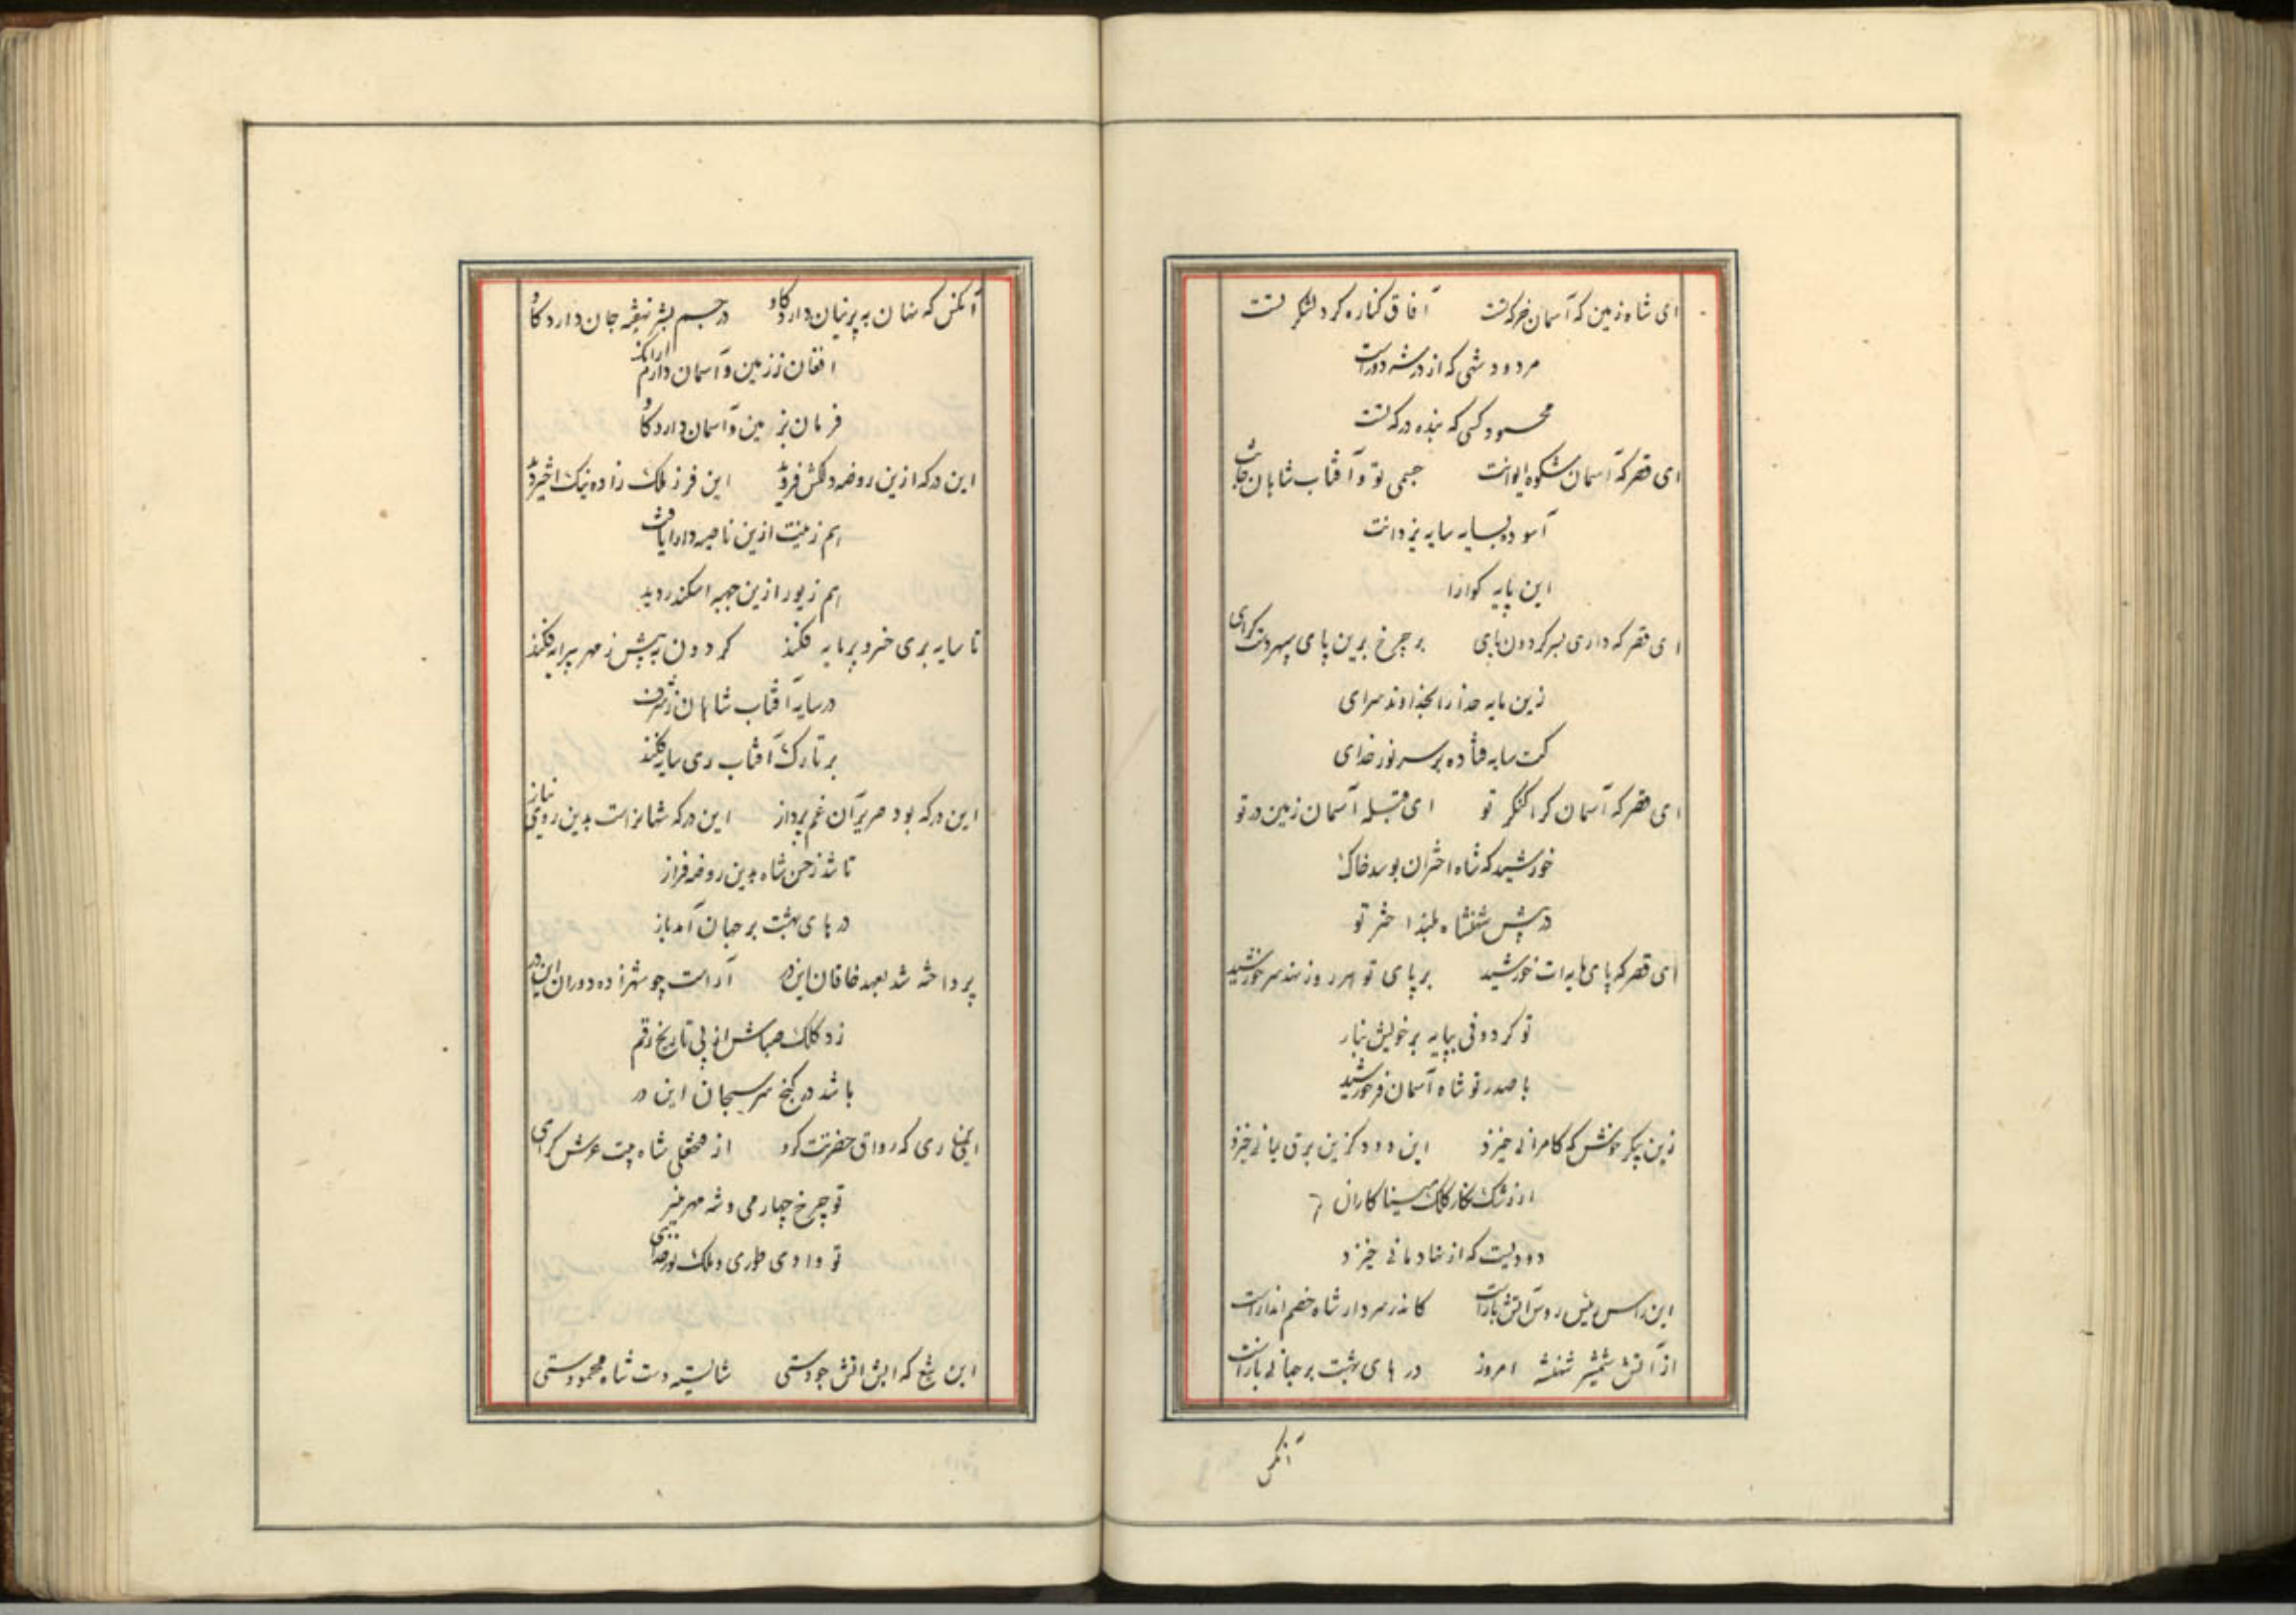 ای شاه زمین که آسمان خرگه تست آفاق کناره گرد لشکر تست
مردود شهی که از درت دور است
محسود کسی که بنده درگه تست
ای قصر که آسمان شکوه ایوانت جسمی تو و آفتاب شاهان جانت
آسوده بسایه سایه یزدانت
این پایه گوارا
ای قصر که داری بسر گردون پای بر چرخ برین پای سپهرت گرای
زین مایه حذر را بخداوند سرای
کت سایه فتاده بر سر نور خدای
ای قصر که آسمان کرا کنگر تو ای قبله آسمان زمین در تو
خورشید که شاه اختران بوسد خاک
در پیش شهنشاه بلند اختر تو
ای قصر که پای مایه ات خورشید بر پای تو هر روز نهد سر خورشید
تو گردونی بپایه بر خویش ببار
با صدر تو شاه آسمان فر خورشید
زین پیکر خوش که کامرانی خیزد این دود کزین برق یمانی خیزد
از رشک نگار کلک مینا کاران
دودیست که از شادمانی خیزد
این راس روس آتش بار است کاندر سر دار شاه خصم
از آتش شمشیر شهنشه امروز در های بهشت بر جهانی باز است
آنکس
آنکس که نهان به پرنیان دارد کاو در جسم بشر نهفته جان دارد کاو
افغان ز زمین و آسمان دارم
فرمان بزمین و آسمان دارد کاو
این در که ازین روضه دلکش فر دید این فر ز ملک زاده نیک اختر دید
هم زینت ازین ناصیه دارا یافت
هم زیور ازین جبهه اسکندر دید
تا سایه بری خسرو پرمایه فکند گردون به پیش ز مهر پیرایه فکند
در سایه آفتاب شاهان ز شرف
بر تارک آفتاب ری سایه فکند
این در که بود صریر آن غم پرداز این در که شهانراست بدین روی نیاز
تا شد ز حسن شاه بدین روضه فراز
در های بهشت بر جهان آمد باز
پرداخته شد بعهد خاقان این در آراست چو شهزاده دوران این در
زد کلک صباش از پی تاریخ رقم
باشد در گنج سر سبحان این در
ری که رواق حضرتت گردد از شاه بیت عرش گرای
تو چرخ چهارمی و شه مهر منیر
تو وادی طوری و ملک نور خدای
این تیغ که آبش آتش جودستی شایسته دست شاه محمودستی